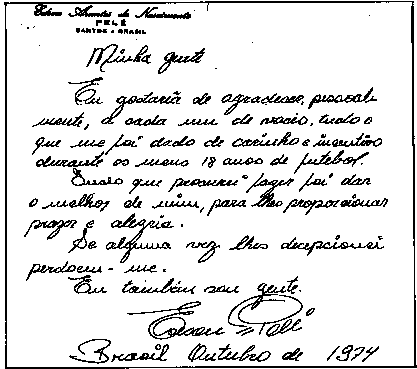 Edson Arantes do Nascimento
PELÉ
SANTOS - BRASIL
Minha gente
Eu gostaria de agradecer, pessoal-
mente, a cada um de vocês, tudo o
que me foi dado de carinho e incentivo
durante os meus 18 anos de futebol.
Tudo que procurei fazer foi dar
o melhor de mim, para lhes proporcionar
prazer e alegria.
Se alguma vez lhes decepcionei
perdoem-me.
Eu também sou gente.
Edson Pelé
Brasil Outubro de 1974